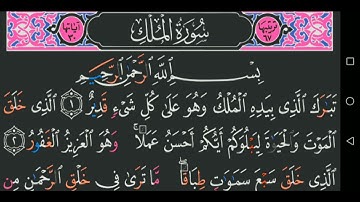 ترتيبها ٦٧ سُورَةُ المُلْكِ آياتها ٣٠
بِسْمِ ٱللَّهِ ٱلرَّحْمَٰنِ ٱلرَّحِيمِ
تَبَٰرَكَ ٱلَّذِى بِيَدِهِ ٱلْمُلْكُ وَهُوَ عَلَىٰ كُلِّ شَىْءٍ قَدِيرٌ ١ ٱلَّذِى خَلَقَ
ٱلْمَوْتَ وَٱلْحَيَوٰةَ لِيَبْلُوَكُمْ أَيُّكُمْ أَحْسَنُ عَمَلًا ۚ وَهُوَ ٱلْعَزِيزُ ٱلْغَفُورُ ٢
ٱلَّذِى خَلَقَ سَبْعَ سَمَٰوَٰتٍ طِبَاقًا ۖ مَّا تَرَىٰ فِى خَلْقِ ٱلرَّحْمَٰنِ مِن